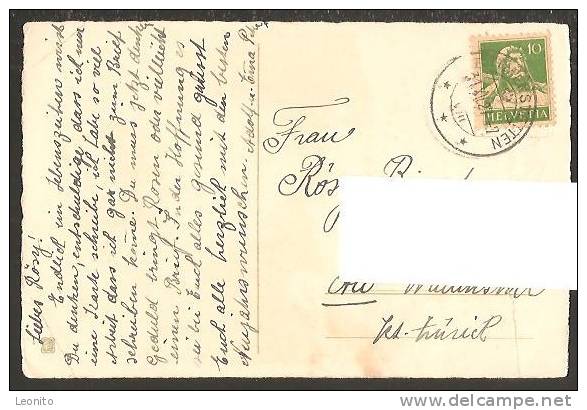 Liebes Rösy!
Endlich ein Lebenszeichen wirst
Du denken, entschuldige dass ich nur
eine Karte schreibe, ich habe so viel
Arbeit dass ich gar nicht zum Brief
schreiben komme. Du muss jetzt denken
Geduld bringt Rosen oder vielleicht
einen Brief. In der Hoffnung es
sei bei Euch alles gesund grüsst
Euch alle herzlich mit den besten
Neujahrswünschen Adolf u. Erna
Frau
HELVETIA
10
Kt. Zürich
Leonito
delcampe.net